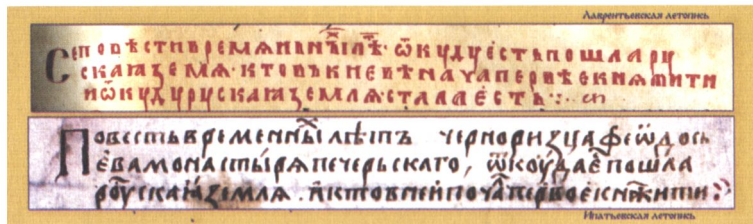 Лаврентьевская летопись
Се повѣсти времѧньныⷯ лѣⷮ· ѿкуду єсть пошла ру
скаꙗ земѧ· кто въ киевѣ нача первѣє кнѧжити
и ѿкуду рускаꙗ землѧ· стала єсть :·
Повесть временныⷯ лѣтъ черноризца феѡдось
єва монастырѧ печерьскаго, ѿкоуда є҇ пошла
роускаꙗ землѧ . и кто в неи поча первоє кнѧжити :·
Ипатьевская летопись